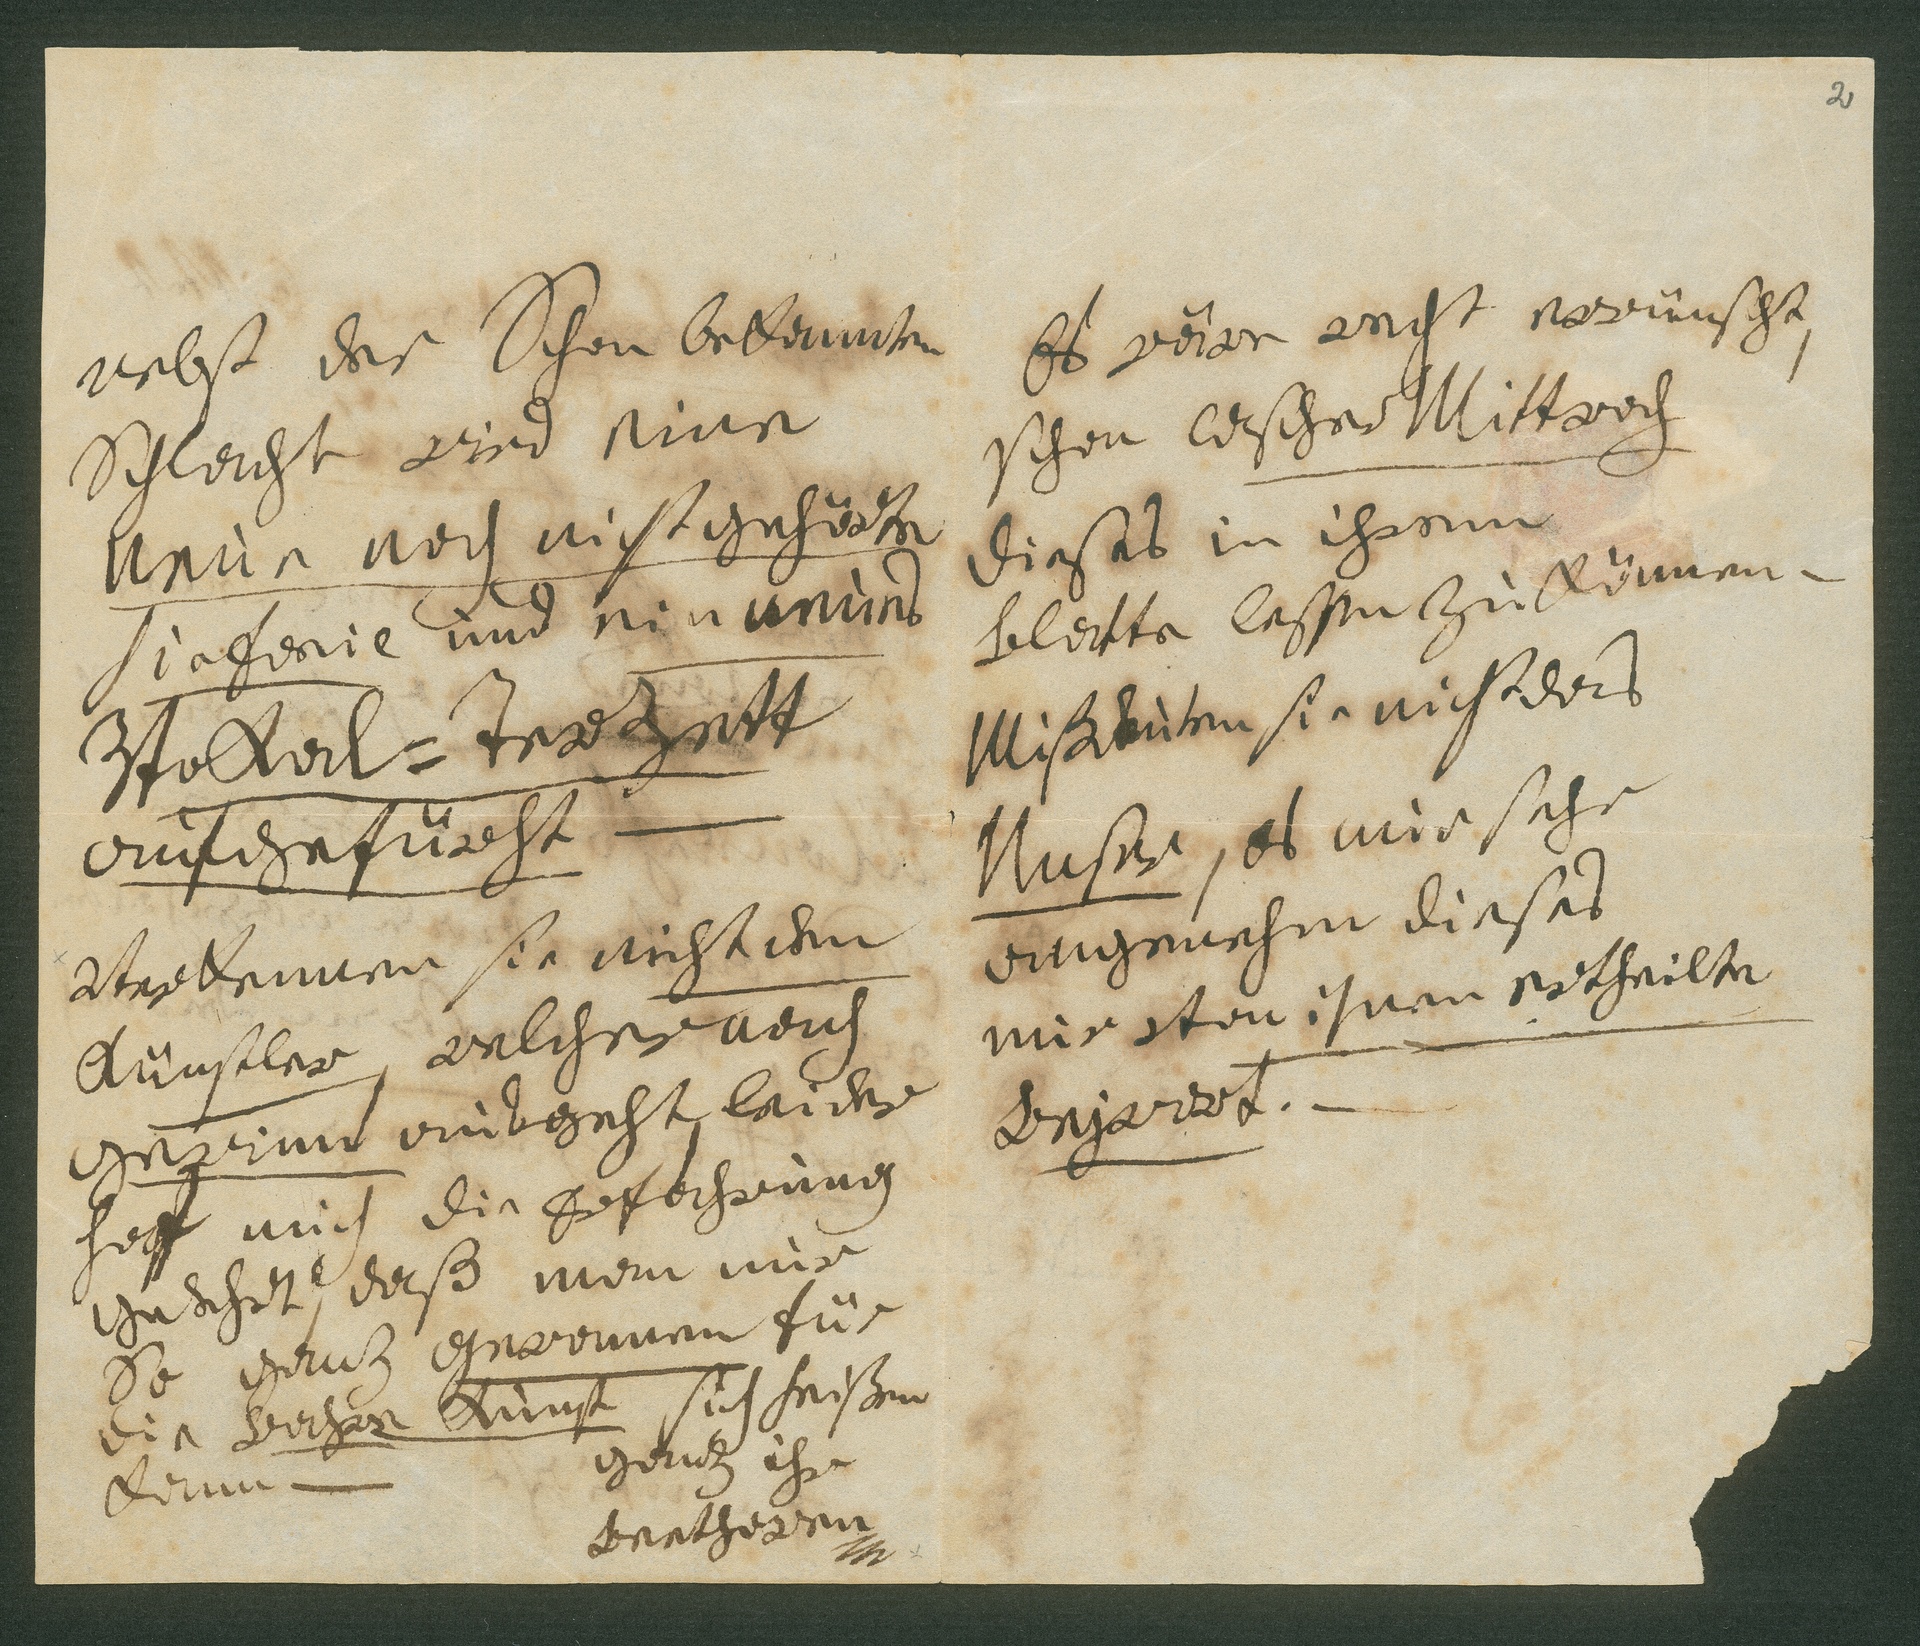 2
nebst der Schon bekannten
Schlacht wird eine
neue noch nicht gehörte
sinfonie und ein neues
Vokal=Terzett
aufgeführt —
verkennen sie nicht den
Künstler, welcher nach
gewinn geht, leider
hat mich die erfahrung
gelehrt, daß man mir
So ganz gewonnen für
die wahre Kunst sich heißen
kann —
ganz ihr
Beethoven
Es wäre recht erwünscht,
schon Mittwoch
dieses in ihrem
blatte lesen zu können —
Mißdeuten sie nicht das
, es mir sehr
angenehm dieses
mir von ihnen ertheilte
beywort. —